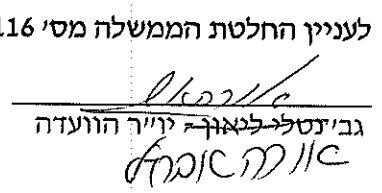 לעניין החלטת הממשלה מס׳ 116
גב׳ נטלי ליאון - יו״ר הוועדה